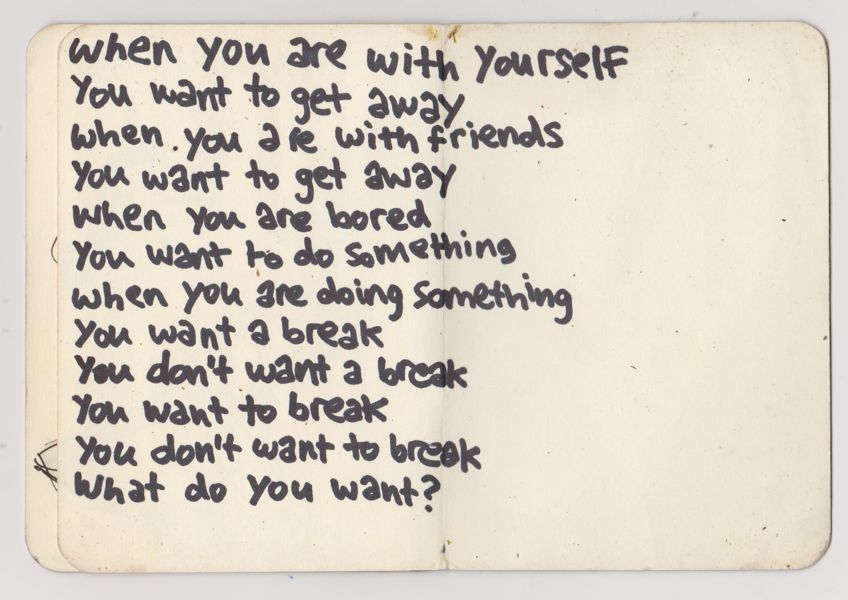 when you are with yourself
You want to get away
when. you are with friends
You want to get away
when you are bored
You want to do something
when you are doing something
You want a break
You don't want a break
You want to break
You don't want to break
What do you want?